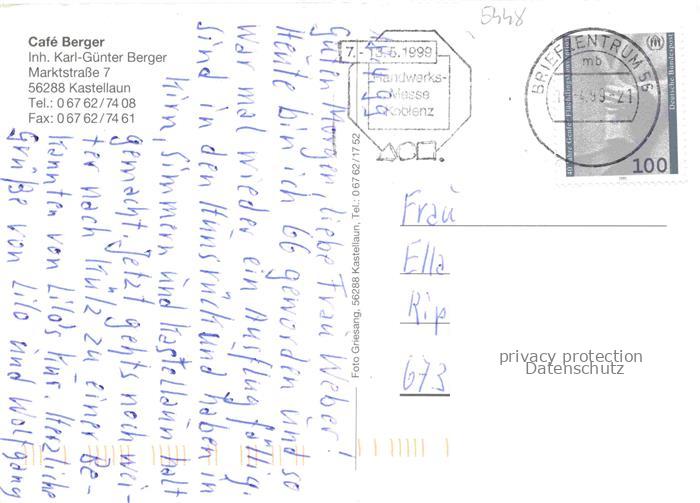 Café Berger
Inh. Karl-Günter Berger
Marktstraße 7
56288 Kastellaun
Tel.: 0 67 62 / 74 08
Fax: 0 67 62 / 74 61
5448
7.-13.5.1999
Handwerks-
Messe
Koblenz
BRIEFZENTRUM 56
mb
.4.99-21
Deutsche Bundespost
100
Guten Morgen, liebe Frau Weber!
Heute bin ich 66 geworden und so
war mal wieder ein Ausflug fällig.
Sind in den Hunsrück und haben in
Kirn, Simmern und Kastellaun halt
gemacht. Jetzt gehts noch wei-
ter nach Külz zu einer Be-
kannten von Lilo's Kus. Herzliche
Grüße von Lilo und Wolfgang
Foto Griesang, 56288 Kastellaun, Tel.: 0 67 62 / 17 52
Frau
Ella
Rip
673
privacy protection
Datenschutz